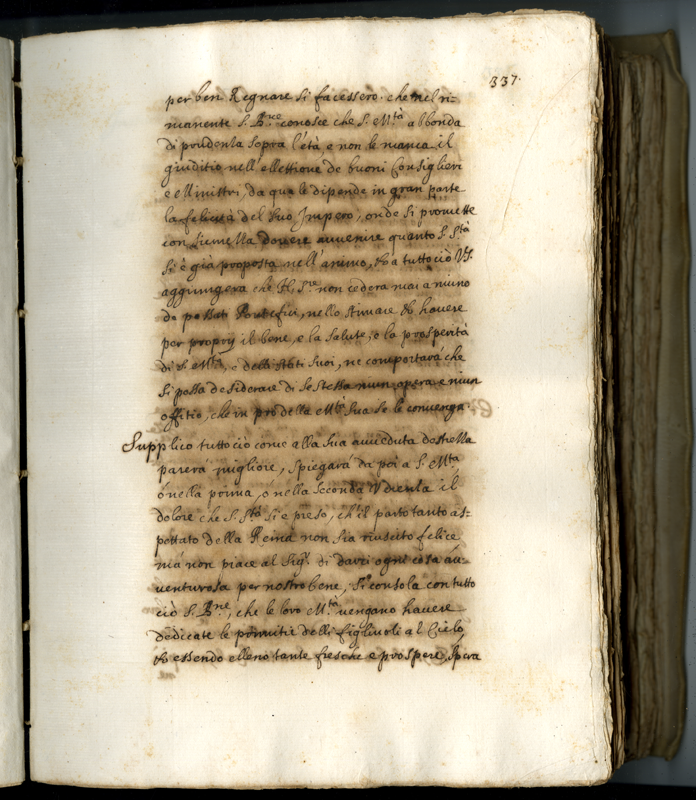 337.
per ben Regnare si facessero. che nel ri-
manente S. B.ne conosce che S. M.tà abbonda
di prudenza sopra l'età, e non le manca il
giuditio nell'ellettione de buoni Consiglieri
e Ministri, da quali dipende in gran parte
la felicità del suo Impero, onde si promette
con fermezza dovere avvenire quanto S. S.tà
si è già proposta nell'animo, & a tutto ciò V.S.
aggiungerà che N. S.re non cederà mai a niuno
de passati Pontefici, nello stimare & havere
per proprij il bene, e la salute, e la prosperità
di S. M.tà, e delli Stati suoi, ne comportarà che
si possa desiderare di se stessa niun opera e niun
offitio, che in prò della M.tà Sua se le convenga.
Supplico tutto ciò come alla sua avveduta destrezza
parerà migliore, spiegarà da poi a S. M.tà
ò nella prima, ò nella seconda Udienza il
dolore che S. S.tà si è preso, ch'il parto tanto as-
pettato della Reina non sia riuscito felice
mà non piace al Sig.r di darci ogni cosa av-
venturosa per nostro bene, si consola con tutto
ciò S. B.ne, che le loro M.tà vengano havere
dedicate le primitie delli figlivoli al Cielo,
& essendo elleno tante fresche e prospere, spera